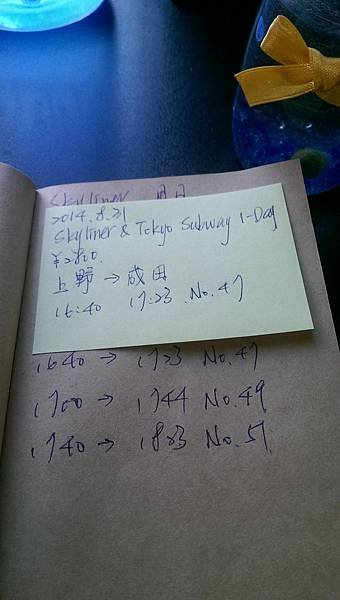 Skyliner
2014.8.21
Skyliner & Tokyo Subway 1-Day
¥2800.
上野 → 成田
16:40 17:23 No.47
1640 → 1723 No.47
1700 → 1744 No.49
1740 → 1823 No.51